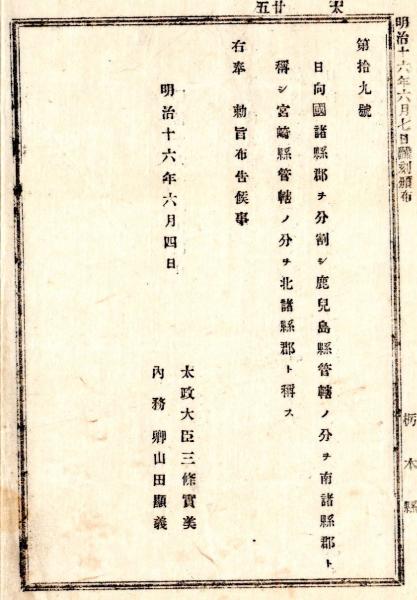 明治十六年六月七日飜刻頒布
太 廿五
第拾九號
日向國諸縣郡ヲ分割シ鹿兒島縣管轄ノ分ヲ南諸縣郡ト
稱シ宮崎縣管轄ノ分ヲ北諸縣郡ト稱ス
右奉 勅旨布告候事
明治十六年六月四日
太政大臣三條實美
內務卿山田顯義
栃木縣